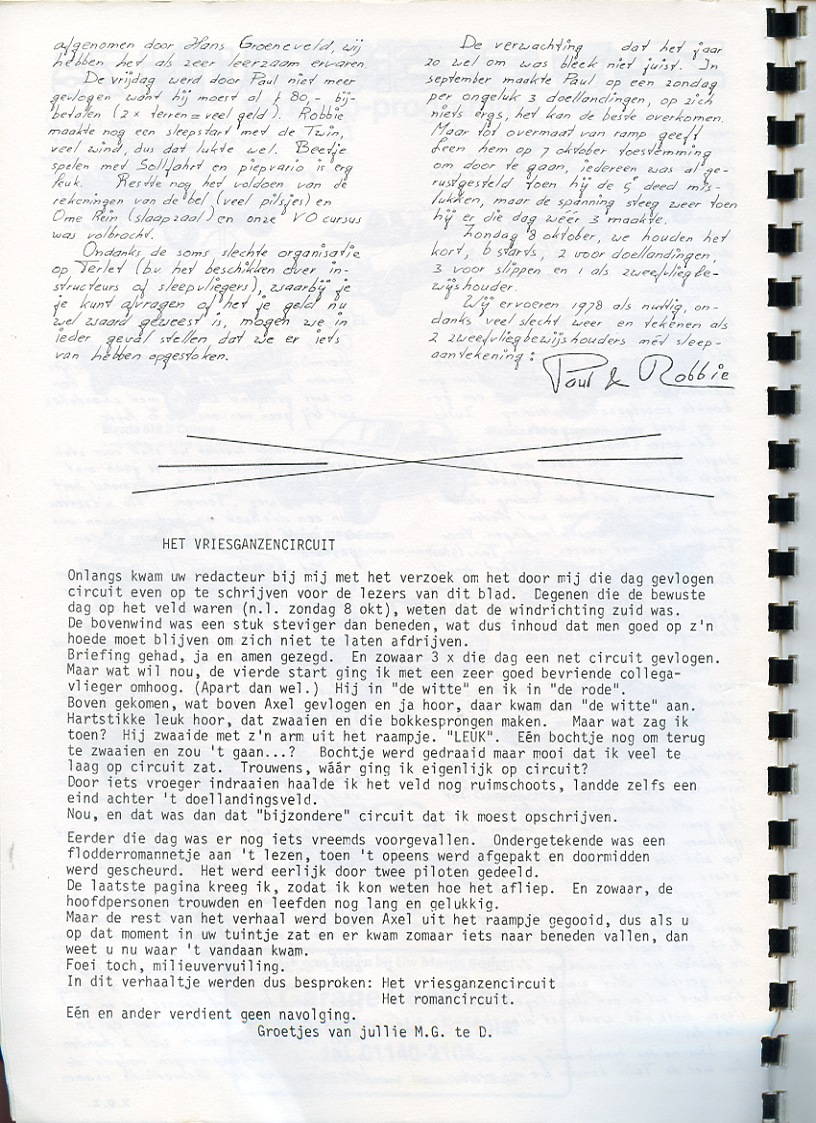 afgenomen door Hans Groeneveld, wij
hebben het als zeer leerzaam ervaren.
De vrijdag werd door Paul niet meer
gevlogen want hij moest al f 80,- bij-
betalen (2 x terren = veel geld). Robbie
maakte nog een sleepstart met de Twin,
veel wind, dus dat lukte wel. Beetje
spelen met Sollfahrt en piepvario is erg
leuk. Restte nog het voldoen van de
rekeningen van de bel (veel pilsjes) en
Ome Rein (slaapzaal) en onze VO cursus
was volbracht.
Ondanks de soms slechte organisatie
op Terlet (b.v. het beschikken over in-
structeurs of sleepvliegers), waarbij je
je kunt afvragen of het je geld nu
wel waard geweest is, mogen we in
ieder geval stellen, dat we er iets
van hebben opgestoken.
De verwachting dat het jaar
zo wel om was bleek niet juist. In
september maakte Paul op een zondag
per ongeluk 3 doellandingen, op zich
niets ergs, het kan de beste overkomen.
Maar tot overmaat van ramp geeft
Leen hem op 7 oktober toestemming
om door te gaan, iedereen was al ge-
rustgesteld toen hij de 5e deed mis-
lukken, maar de spanning steeg weer toen
hij er die dag wéér 3 maakte.
Zondag 8 oktober, we houden het
kort, 6 starts, 2 voor doellandingen,
3 voor slippen en 1 als zweefvliegbe-
wijshouder.
Wij ervoeren 1978 als nuttig, on-
danks veel slecht weer en tekenen als
2 zweefvliegbewijshouders mét sleep-
aantekening:
Paul & Robbie
HET VRIESGANZENCIRCUIT
Onlangs kwam uw redacteur bij mij met het verzoek om het door mij die dag gevlogen
circuit even op te schrijven voor de lezers van dit blad. Degenen die de bewuste
dag op het veld waren (n.l. zondag 8 okt), weten dat de windrichting zuid was.
De bovenwind was een stuk steviger dan beneden, wat dus inhoud dat men goed op z'n
hoede moet blijven om zich niet te laten afdrijven.
Briefing gehad, ja en amen gezegd. En zowaar 3 x die dag een net circuit gevlogen.
Maar wat wil nou, de vierde start ging ik met een zeer goed bevriende collega-
vlieger omhoog. (Apart dan wel.) Hij in "de witte" en ik in "de rode".
Boven gekomen, wat boven Axel gevlogen en ja hoor, daar kwam dan "de witte" aan.
Hartstikke leuk hoor, dat zwaaien en die bokkesprongen maken. Maar wat zag ik
toen? Hij zwaaide met z'n arm uit het raampje. "LEUK". Eén bochtje nog om terug
te zwaaien en zou 't gaan...? Bochtje werd gedraaid maar mooi dat ik veel te
laag op circuit zat. Trouwens, wáár ging ik eigenlijk op circuit?
Door iets vroeger indraaien haalde ik het veld nog ruimschoots, landde zelfs een
eind achter 't doellandingsveld.
Nou, en dat was dan dat "bijzondere" circuit dat ik moest opschrijven.
Eerder die dag was er nog iets vreemds voorgevallen. Ondergetekende was een
flodderromannetje aan 't lezen, toen 't opeens werd afgepakt en doormidden
werd gescheurd. Het werd eerlijk door twee piloten gedeeld.
De laatste pagina kreeg ik, zodat ik kon weten hoe het afliep. En zowaar, de
hoofdpersonen trouwden en leefden nog lang en gelukkig.
Maar de rest van het verhaal werd boven Axel uit het raampje gegooid, dus als u
op dat moment in uw tuintje zat en er kwam zomaar iets naar beneden vallen, dan
weet u nu waar 't vandaan kwam.
Foei toch, milieuvervuiling.
In dit verhaaltje werden dus besproken: Het vriesganzencircuit
Het romancircuit.
Eén en ander verdient geen navolging.
Groetjes van jullie M.G. te D.